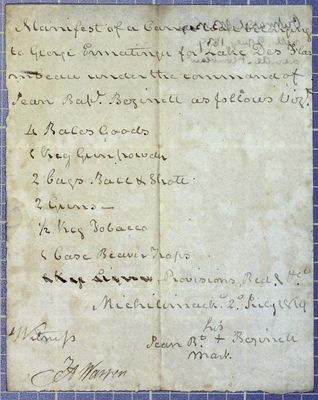 Manifest of a Canoe
to George Ermatinger for Lake Des Flam
beau under the command of
Jean Bapt. Bezinett as follows Vizt.
4 Bales Goods
1 Keg Gunpowder
2 bags Ball & Shott
2 Guns
1/2 Keg Tobacco
1 Case Beaver Traps
Provisions, Bed, &c
Michilimacc 2 July 1819
his
Witness
Jean Bt. + Bezinett
mark